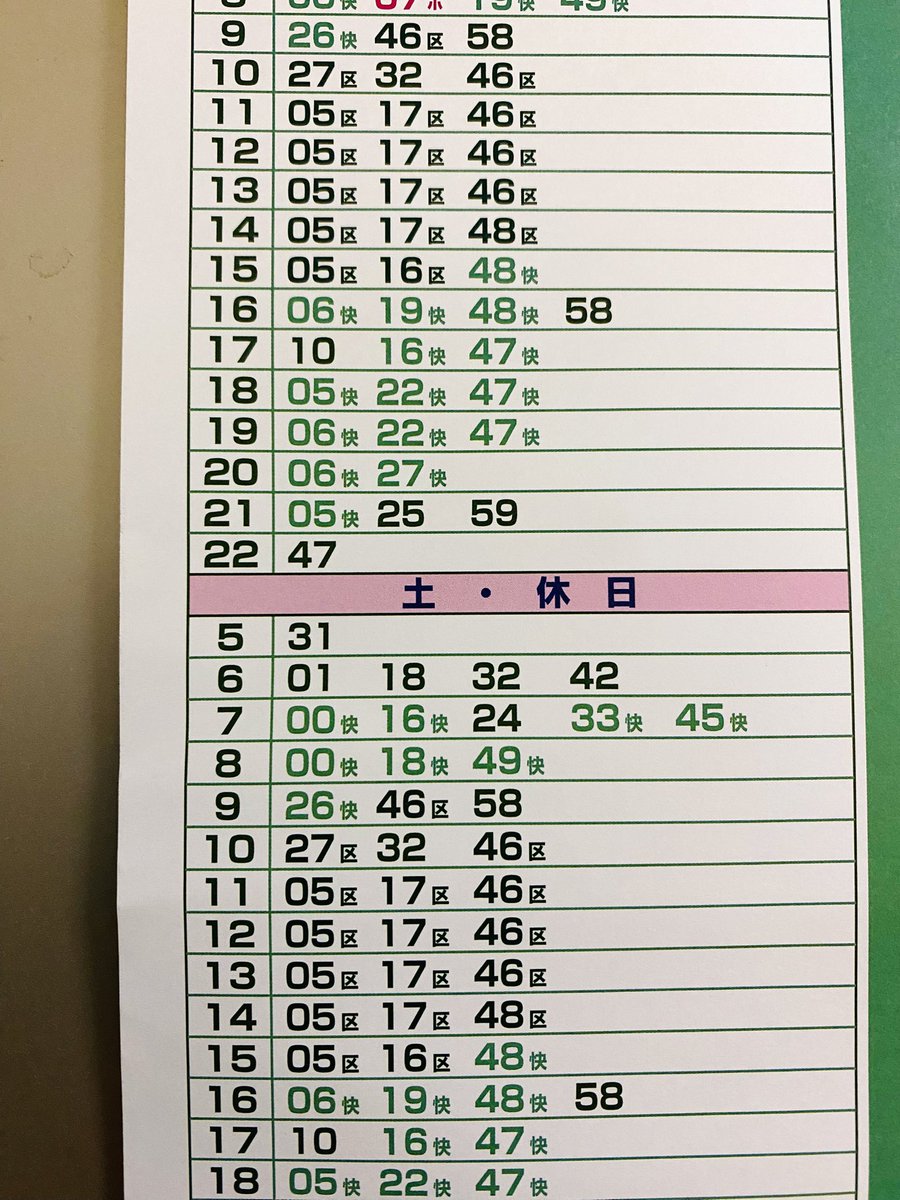 8 00快 07ホ 19快 49快
9 26快 46区 58
10 27区 32 46区
11 05区 17区 46区
12 05区 17区 46区
13 05区 17区 46区
14 05区 17区 48区
15 05区 16区 48快
16 06快 19快 48快 58
17 10 16快 47快
18 05快 22快 47快
19 06快 22快 47快
20 06快 27快
21 05快 25 59
22 47
土・休日
5 31
6 01 18 32 42
7 00快 16快 24 33快 45快
8 00快 18快 49快
9 26快 46区 58
10 27区 32 46区
11 05区 17区 46区
12 05区 17区 46区
13 05区 17区 46区
14 05区 17区 48区
15 05区 16区 48快
16 06快 19快 48快 58
17 10 16快 47快
18 05快 22快 47快